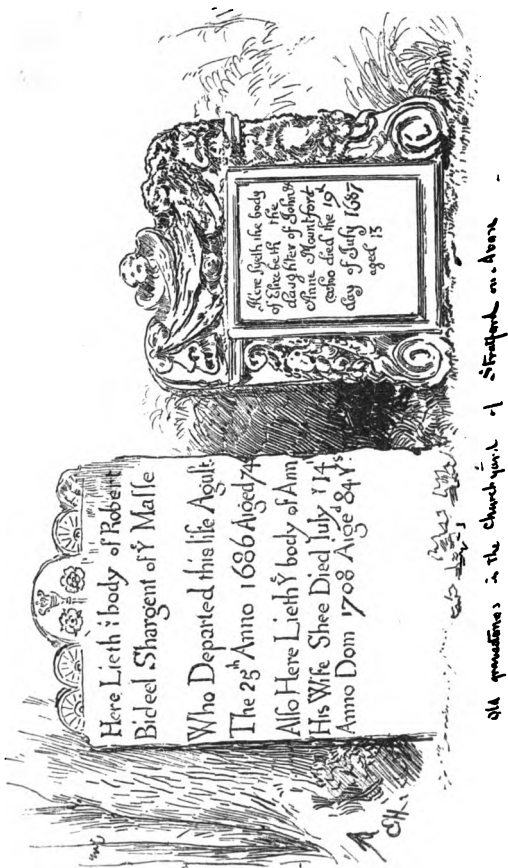 Here Lieth yͤ body of Robert
Bideel Shargent of yͤ Masse
Who Departed this life Agult
The 25th Anno 1686 Aiged 74
Also Here Lieth yͤ body of Ann
His Wife Shee Died July yͤ 14
Anno Dom 1708 Aiged 84 Yˢ
Here lyeth the body
of Elizebeth the
daughter of John &
Anne Mountfort
who died the 19th
day of July 1687
aged 13
Old gravestones in the Churchyard of Stratford on Avon